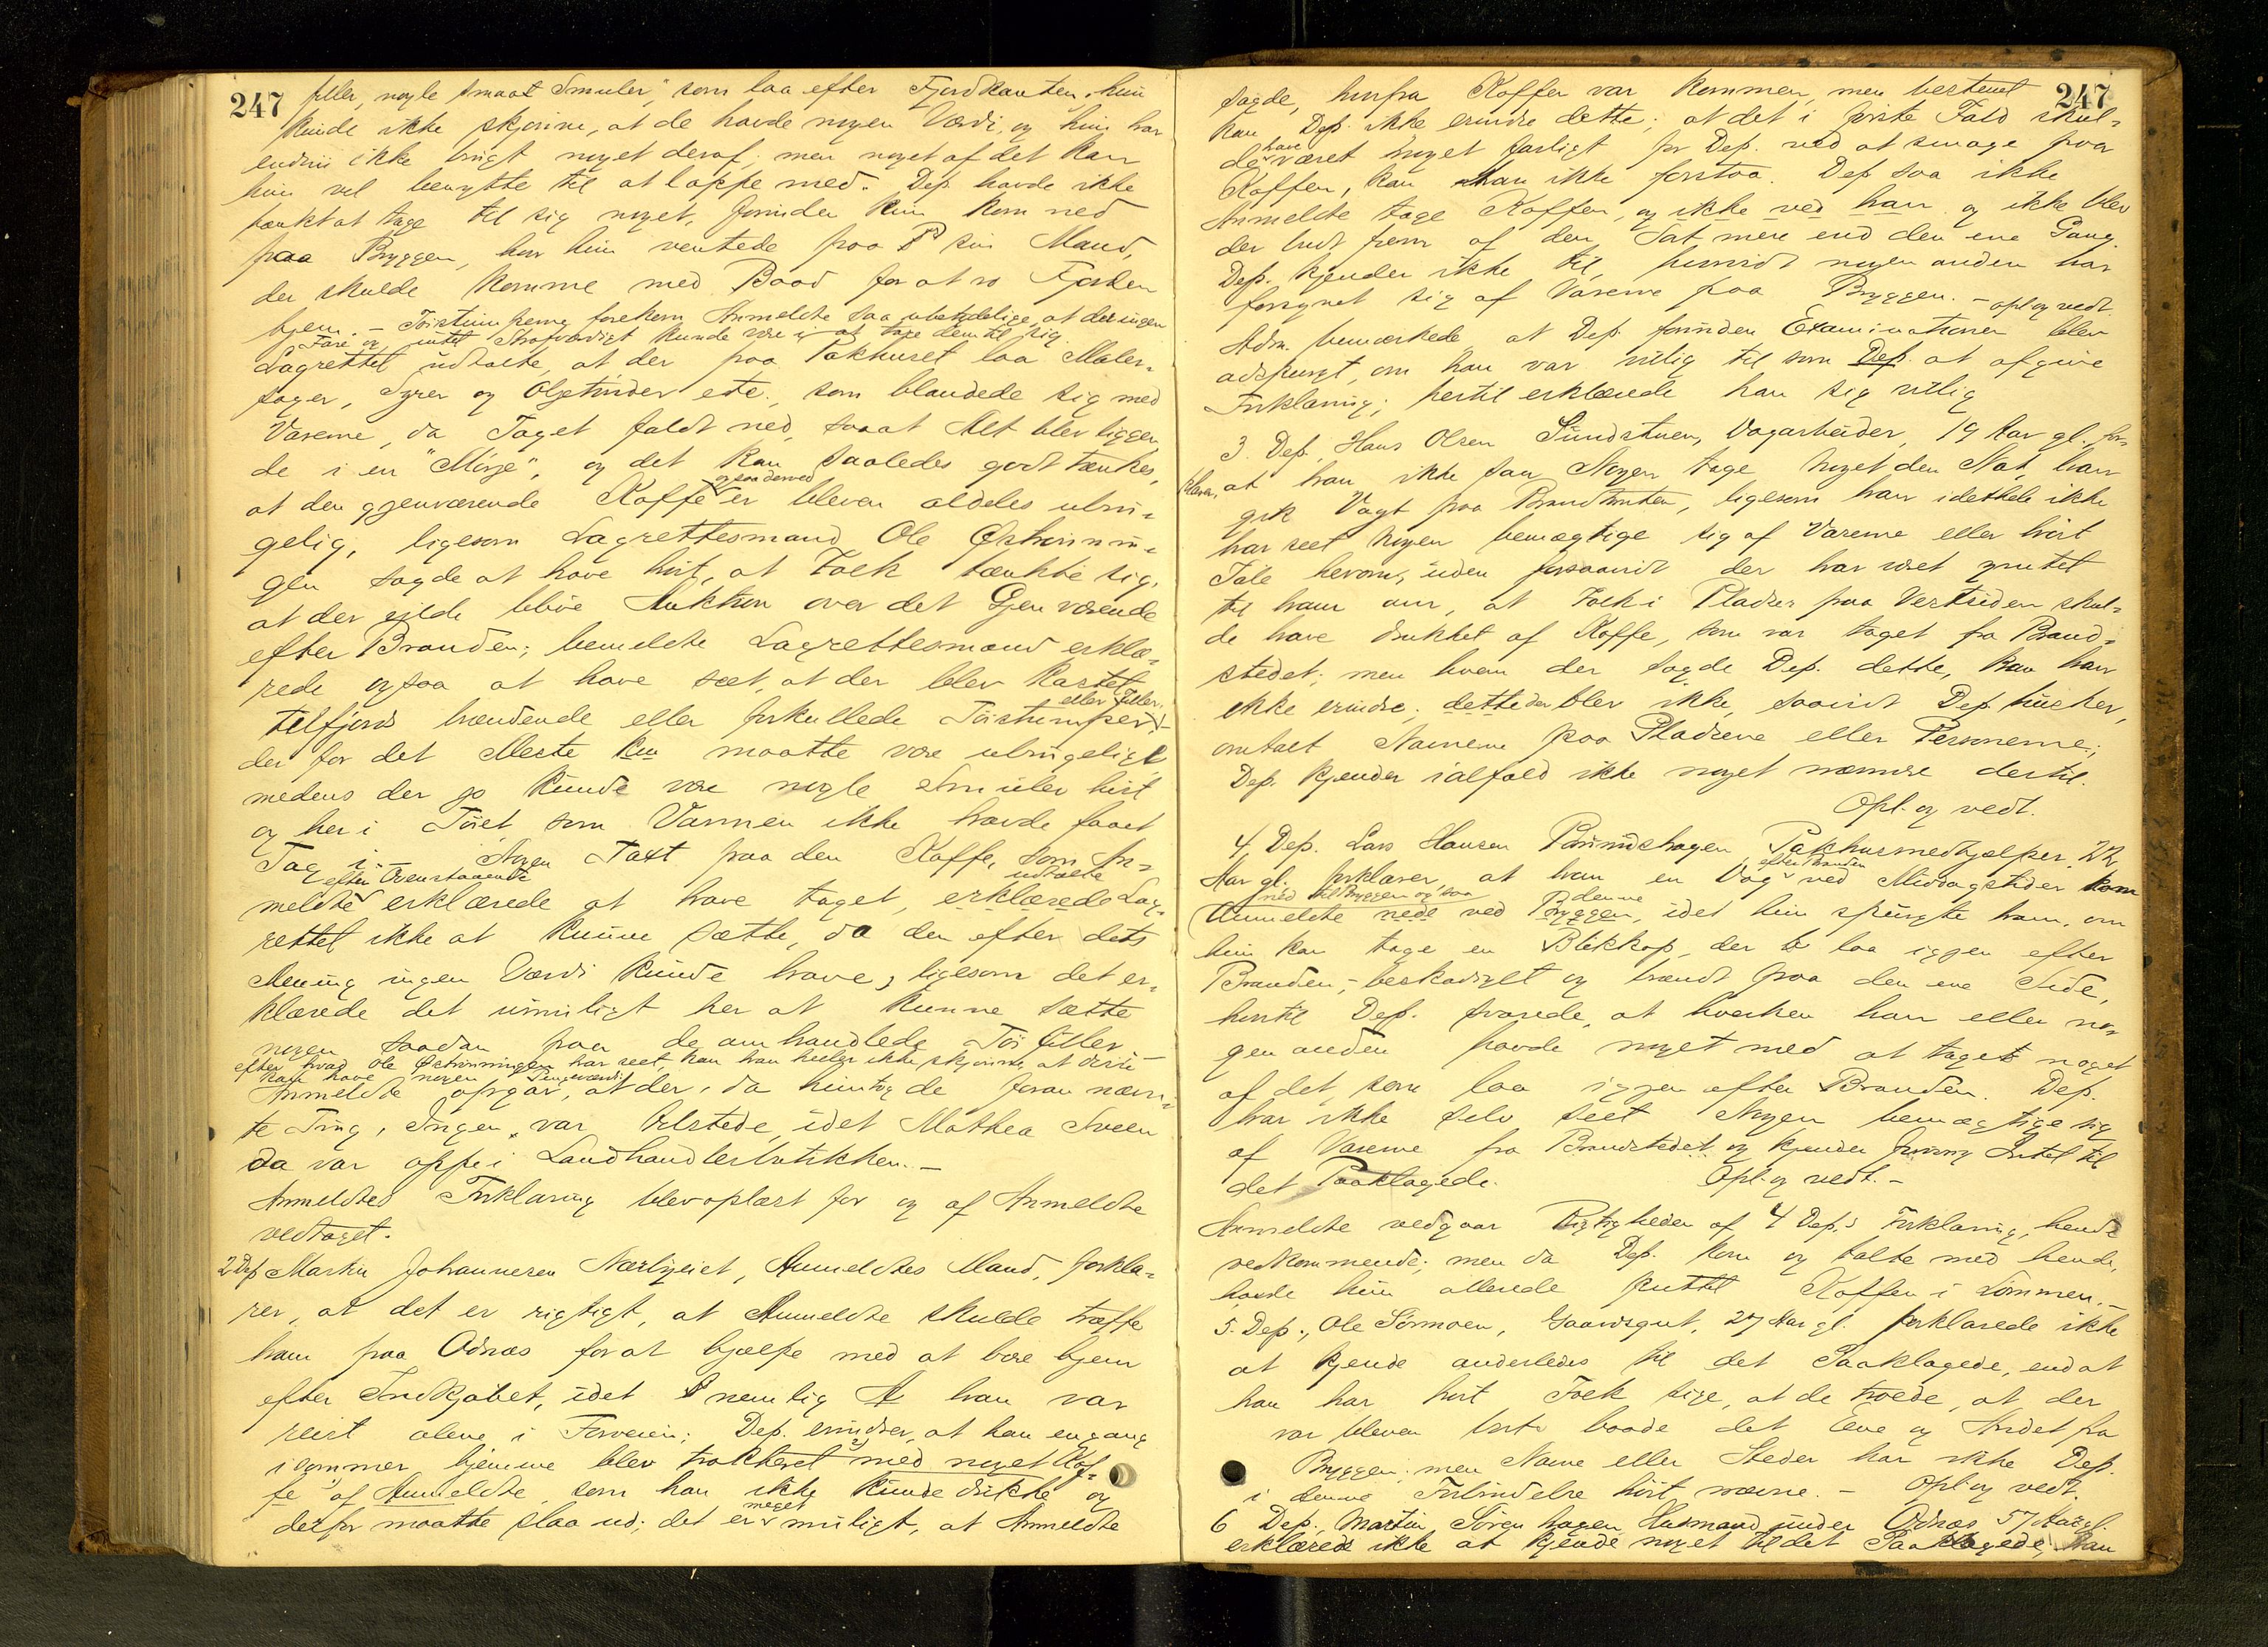 247
filler, nogle smaat Smuler," som laa efter Fjordkanten. hun
kunde ikke skjønne, at de havde nogen Værdi, og hun har
endnu ikke brugt noget deraf; men noget af det kan
hun vel benytte til at lappe med. Dep. havde ikke
tænkt at tage til sig noget, forinden hun kom ned
paa Bryggen, hvor hun ventede paa sin Mand,
der skulde komme med Baad for at ro Fjorden
hjem. – Tøistumperne forekom Anmeldte saa ubetydelige, at det ingen
Fare og intet Strafværdigt kunde være i at tage dem til sig.
Lagrettet udtalte, at der paa Pakhuset laa Maler-
sager, Syrer og Oljetønder etc., som blandede sig med
Varerne, da Taget faldt ned, saaat Alt blev liggen
de i en "Mørje", og det kan saaledes godt tænkes,
at den gjenværende Kaffe ogsaa derved er bleven aldeles ubru-
gelig, ligesom Lagrettesmand Ole Østrønnin-
gen sagde at have hørt, at Folk tænkte sig,
at der vilde blive Auktion over det Gjenværende
efter Branden; bemeldte Lagrettesmand erklæ-
rede ogsaa at have seet, at der blev kastet
tilfjords brændende eller forkullede Tøistumper eller Filler, –
der for det Meste kun maatte være ubrugeligt,
medens der jo kunde være nogle Smuler hist
og her i Tøiet, som Varmen ikke havde faaet
Tag i. – Nogen Taxt paa den Kaffe, som An-
meldte efter Ovenstaaende erklærede at have taget, udtalte Lag-
rettet ikke at kunne sætte, da den efter dets
Mening ingen Værdi kunde have, ligesom det er-
klærede det umuligt her at kunne sætte
nogen saadan paa de omhandlede Tøifiller –
efter hvad Ole Østrønningen har seet, kan han heller ikke skjønne, at disse
kan have nogen Pengeværdi.
Anmeldte opgav, at der, da hun tog de forannævn-
te Ting, Ingen var tilstede, idet Mathea Sveen
da var oppe i Landhandlerbutikken. –
Anmeldtes Forklaring blev oplæst for og af Anmeldte
vedtaget.
2 Dep Martin Johannesen Anmeldtes Mand, forkla-
rer, at det er rigtigt, at Anmeldte skulde træffe
ham paa Odnæs for at hjælpe med at bære hjem
efter Indkjøbet, idet nemlig han var
reist alene i Forveien; Dep. erindrer, at han engang
isommer hjemme blev trakteret med noget "Kaf-
fe" af Anmeldte, som han ikke kunde drikke og
derfor maatte slaa ud; det er meget muligt, at Anmeldte
247
sagde, hvorfra Kaffen var kommen, men bestemt
kan Dep. ikke erindre dette; at det i første Fald skul-
de have været noget farligt for Dep. ved at smage paa
Kaffen, kan han ikke forstaa. Dep saa ikke
Anmeldte tage Kaffen, og ikke ved han og ikke blev
der budt frem af den Sat mere end den ene Gang.
Dep. kjender ikke til, hvorvidt nogen anden har
forsynet sig af Varerne paa Bryggen. – opl og vedt.
Adm. bemærkede at Dep forinden Examinationen blev
adspurgt, om han var villig til som Dep. at afgive
Forklaring; hertil erklærede han sig villig
3. Dep. Hans Olsen Sundstuen, Dagarbeider, 19 Aar gl. for-
klarer, at han ikke saa Nogen tage noget den Nat, han
gik Vagt paa Brandtomten, ligesom han idethele ikke
har seet Nogen bemægtige sig af Varerne eller hørt
Tale herom, uden forsaavidt der har været ymtet
til ham om, at Folk i Pladser paa Vestsiden skul-
de have drukket af Kaffe, som var taget fra Brand-
stedet; men hvem der sagde Dep. dette, kan han
ikke erindre; dette der blev ikke, saavidt Dep husker,
omtalt Navnene paa Pladsene eller Personerne;
Dep. kjender ialfald ikke noget nærmere dertil.
Opl. og vedt.
4 Dep. Lars Hansen Pakhusmedhjælper,
Aar gl. forklarer, at han en Dag efter Branden ved Middagstider kom
ned til Bryggen og saa
Anmeldte nede ved denne Bryggen, idet hun spurgte ham, om
hun kan tage en Blikkop, der laa igjen efter
Branden, – beskadiget og brændt paa den ene Side,
hvortil Dep. svarede, at hverken han eller no-
gen anden havde noget med at tage noget
af det, som laa igjen efter Branden. Dep.
har ikke selv seet Nogen bemægtige sig
af Varerne fra Brandstedet og kjender forøvrig Intet til
det Paaklagede. Opl. og vedt. –
Anmeldte vedgaar Rigtigheden af 4 Dep.s Forklaring, hende
vedkommende; men da Dep. kom og talte med hende,
havde hun allerede puttet Kaffen i Lommen. –
5. Dep., Ole Sørmoen, Gaardsgut, 27 Aar gl. forklarede ikke
at kjende anderledes til det Paaklagede, end at
han har hørt Folk sige, at de troede, at der
var bleven borte baade det Ene og Andet fra
Bryggen; men Navne eller Steder har ikke Dep.
i denne Forbindelse hørt nævne. – Opl og vedt.
6 Dep., Martin Sørenhagen Husmand under Odnæs 57 Aar gl.
erklærede ikke at kjende noget til det Paaklagede, han